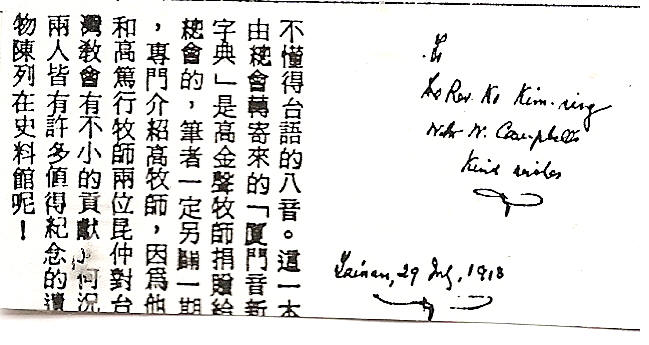 不懂得台語的八音。這一本
由總會轉寄來的「厦門音新
字典」是高金聲牧師捐贈給
總會的，筆者一定另闢一期
，專門介紹高牧師，因爲他
和高篤行牧師兩位昆仲對台
灣教會有不小的貢獻，何況
兩人皆有許多值得紀念的遺
物陳列在史料館呢！
To
The Rev. Ko Kim-sing
With W. Campbell's
Kind wishes
Tainan, 29 July, 1918